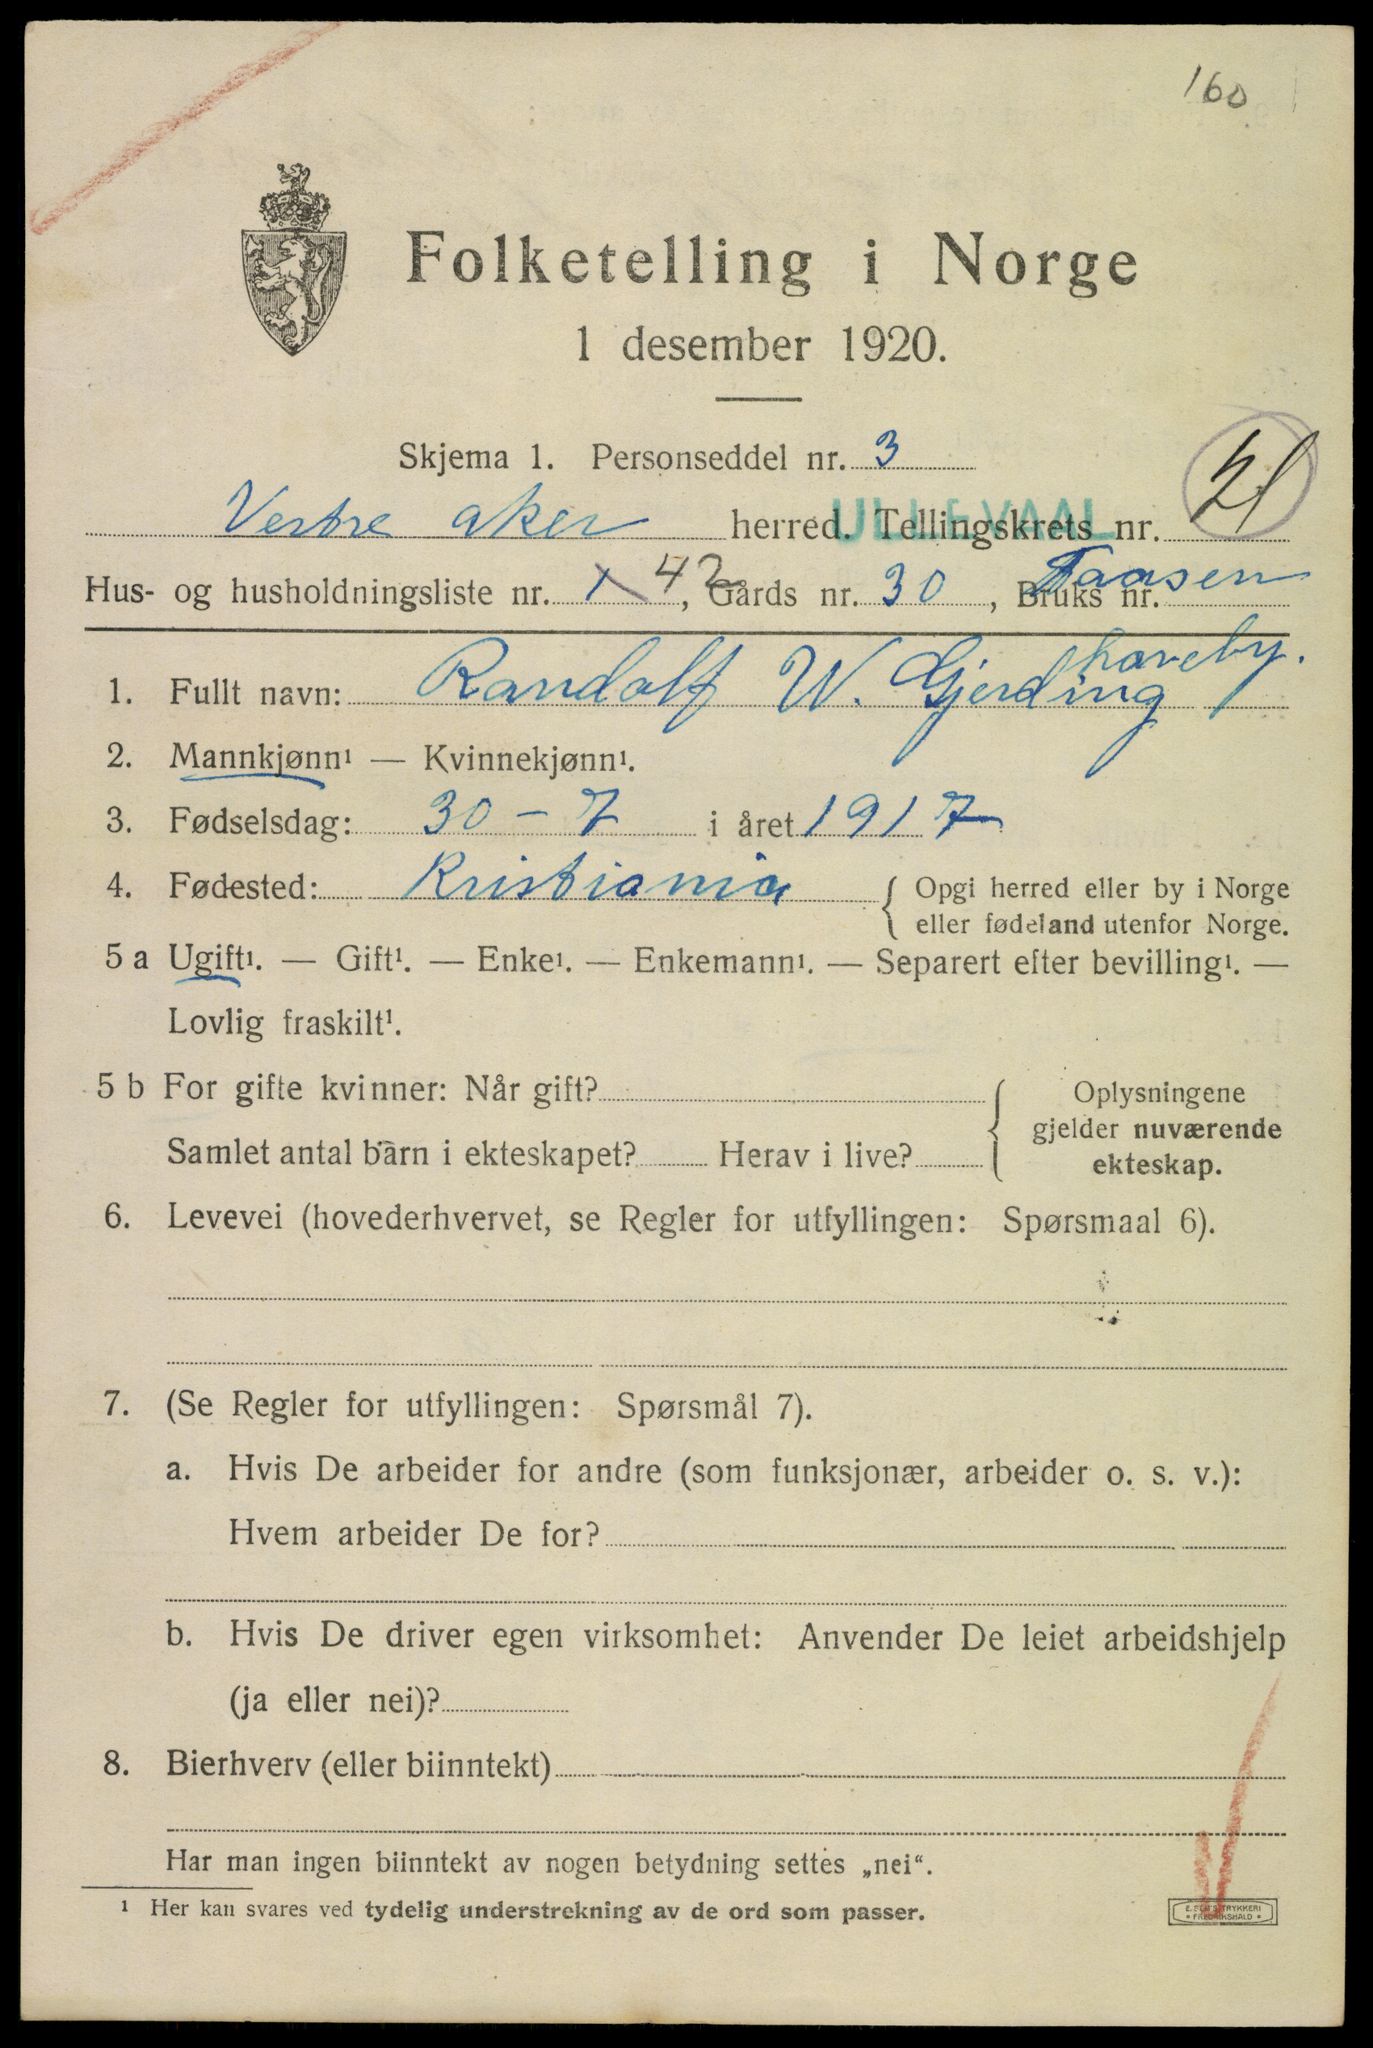 160
Folketelling i Norge
1 desember 1920.
Skjema 1. Personseddel nr. 3
Vestre aker herred. ULLEVAAL Tellingskrets nr. 21
Hus- og husholdningsliste nr. 1 42, Gårds nr. 30, Bruks nr. Taasen
haveby.
1. Fullt navn: Randolf W. Gjerding
2. Mannkjønn¹ — Kvinnekjønn¹.
3. Fødselsdag: 30 - 7 i året 1917
4. Fødested: Kristiania { Opgi herred eller by i Norge
eller fødeland utenfor Norge.
5 a Ugift¹. — Gift¹. — Enke¹. — Enkemann¹. — Separert efter bevilling¹. —
Lovlig fraskilt¹.
5 b For gifte kvinner: Når gift? { Oplysningene
gjelder nuværende
Samlet antal barn i ekteskapet? Herav i live? ekteskap.
6. Levevei (hovederhvervet, se Regler for utfyllingen: Spørsmaal 6).
7. (Se Regler for utfyllingen: Spørsmål 7).
a. Hvis De arbeider for andre (som funksjonær, arbeider o. s. v.):
Hvem arbeider De for?
b. Hvis De driver egen virksomhet: Anvender De leiet arbeidshjelp
(ja eller nei)?
8. Bierhverv (eller biinntekt)
Har man ingen biinntekt av nogen betydning settes „nei“.
¹ Her kan svares ved tydelig understrekning av de ord som passer.
TRYKKERI
FREDRIKSHALD